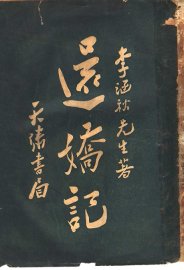 李涵秋先生著
還嬌記
天津書局